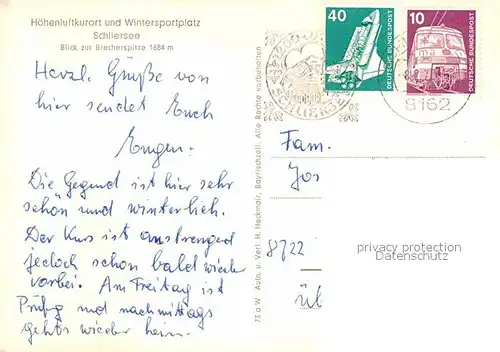 Höhenluftkurort und Wintersportplatz
Schliersee
Blick zur Brecherspitze 1684 m
Herzl. Grüße von
hier sendet Euch
Eugen.
Die Gegend ist hier sehr
schön und winterlich.
Der Kurs ist anstrengend
jedoch schon bald wieder
vorbei. Am Freitag ist
Prüfg und nachmittags
gehts wieder heim.
75 a W Auto. u. Verl. H. Heckmair, Bayrischzell. Alle Rechte vorbehalten
40
DEUTSCHE BUNDESPOST
10
DEUTSCHE BUNDESPOST
SCHLIERSEE
8162
Fam.
Jos
8722
privacy protection
Datenschutz
Üb